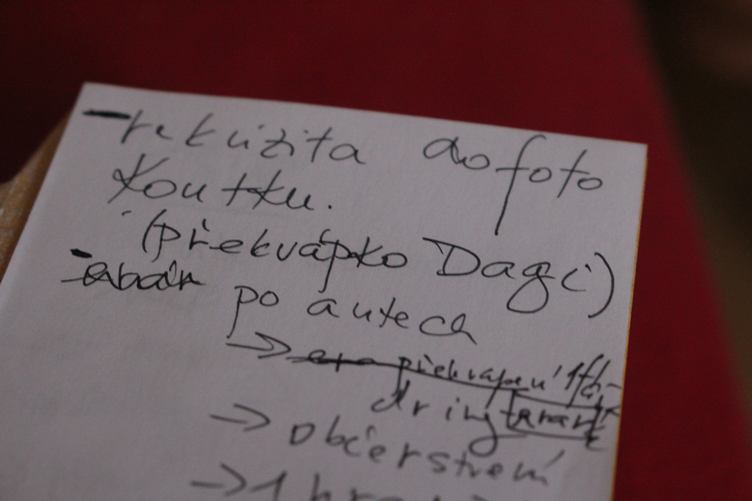 - rekuzita do foto
koutku.
(překvápko Dagi)
- po autech
→ překvapení
dring
→ občerstvení
→ 1